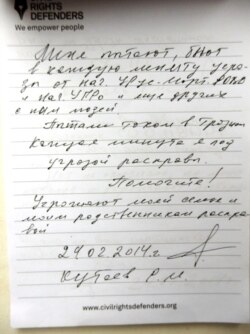 RIGHTS
DEFENDERS
We empower people
Меня пытают, бьют
в каждую минуту угро-
за от нач. Урус-Март. РОВД
и нач. УПРо и еще других
с ним людей
Пытали током в Грозном
каждая минута я под
угрозой расправы.
Помогите!
Угрожают моей семье и
моим родственникам распра
вой
24.02.2014г.
Кутаев Р.М.
www.civilrightsdefenders.org